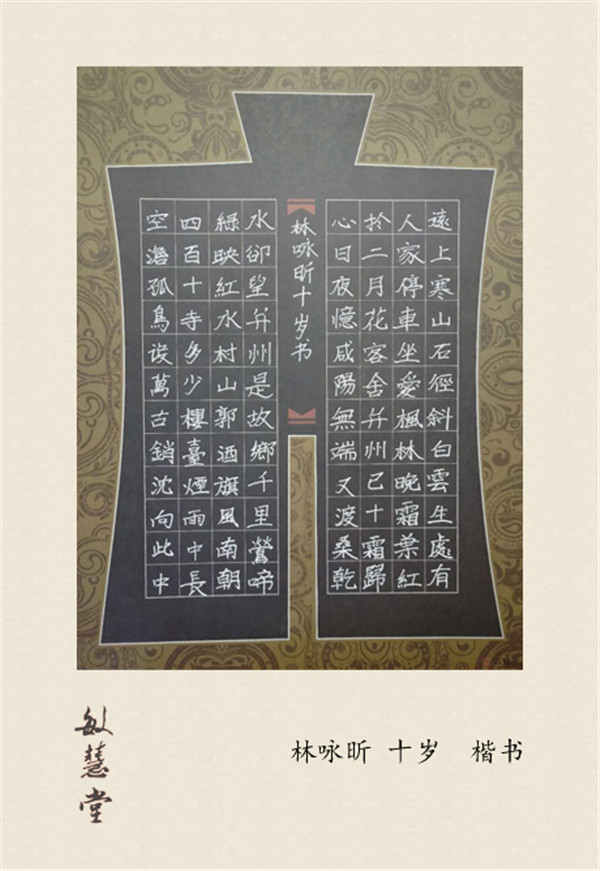 遠上寒山石徑斜白雲生處有
人家停車坐愛楓林晚霜葉紅
於二月花客舍并州已十霜歸
心日夜憶咸陽無端又渡桑乾
林咏昕十岁书
水卻望并州是故鄉千里鶯啼
綠映紅水村山郭酒旗風南朝
四百十寺多少樓臺煙雨中長
空澹孤鳥没萬古銷沈向此中
敏慧堂
林咏昕 十岁 楷书